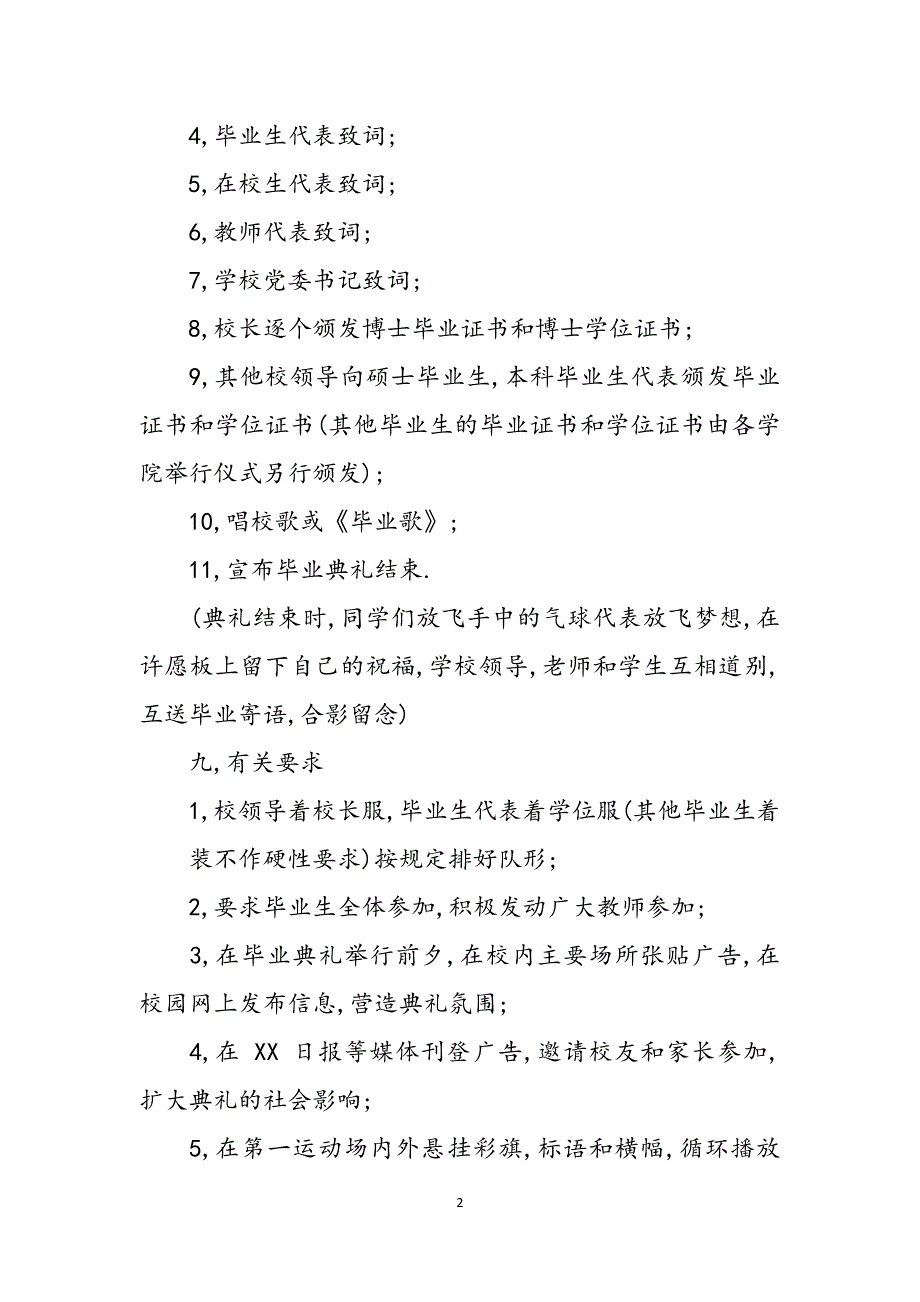 4,毕业生代表致词;
5,在校生代表致词;
6,教师代表致词;
7,学校党委书记致词;
8,校长逐个颁发博士毕业证书和博士学位证书;
9,其他校领导向硕士毕业生,本科毕业生代表颁发毕业
证书和学位证书(其他毕业生的毕业证书和学位证书由各学
院举行仪式另行颁发);
10,唱校歌或《毕业歌》;
11,宣布毕业典礼结束.
(典礼结束时,同学们放飞手中的气球代表放飞梦想,在
许愿板上留下自己的祝福,学校领导,老师和学生互相道别,
互送毕业寄语,合影留念)
九,有关要求
1,校领导着校长服,毕业生代表着学位服(其他毕业生着
装不作硬性要求)按规定排好队形;
2,要求毕业生全体参加,积极发动广大教师参加;
3,在毕业典礼举行前夕,在校内主要场所张贴广告,在
校园网上发布信息,营造典礼氛围;
4,在 XX 日报等媒体刊登广告,邀请校友和家长参加,
扩大典礼的社会影响;
5,在第一运动场内外悬挂彩旗,标语和横幅,循环播放
2